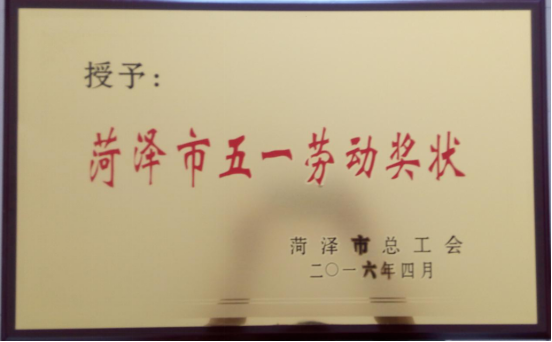 授予：
菏泽市五一劳动奖状
菏泽市总工会
二〇一六年四月